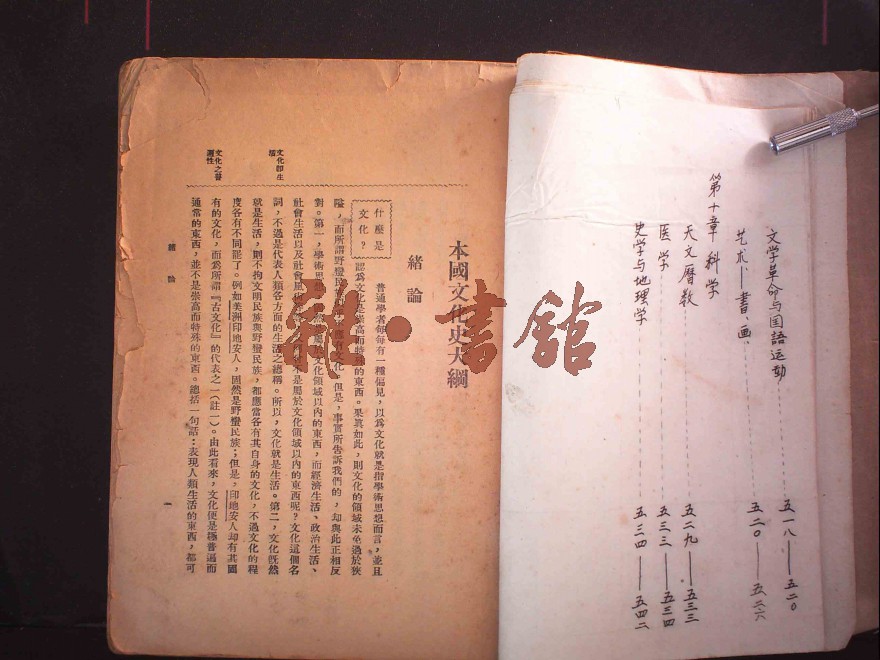 文学革命与国語运动 五一八——五二〇
艺术——書、画 五二〇——五二六
第十章 科学
天文曆数 五二九——五三三
医学 五三三——五三四
史学与地理学 五三四——五四二
本國文化史大綱
緒論
什麼是
文化?
普通學者每每有一種偏見,以爲文化就是指學術思想而言,並且
認爲文化是崇高而特殊的東西。果眞如此,則文化的領域未免過於狹
隘,而所謂野蠻民族 文化。但是,事實所告訴我們的,却與此正相反
對。第一,學術思想 屬於文化領域以內的東西,而經濟生活、政治生活、
社會生活以及社會風 不是屬於文化領域以內的東西呢?文化這個名
詞,不過是代表人類各方面的生活之總稱。所以,文化就是生活。第二,文化旣然
就是生活,則不拘文明民族與野蠻民族,都應當各有其自身的文化,不過文化的程
度各有不同罷了。例如美洲印地安人,固然是野蠻民族;但是,印地安人却有其固
有的文化,而爲所謂『古文化』的代表之一(註一)。由此看來,文化便是極普遍而
通常的東西,並不是崇高而特殊的東西。總括一句話:表現人類生活的東西,都可
文化卽生
活
文化之普
遍性
緒論
一
雜·書館